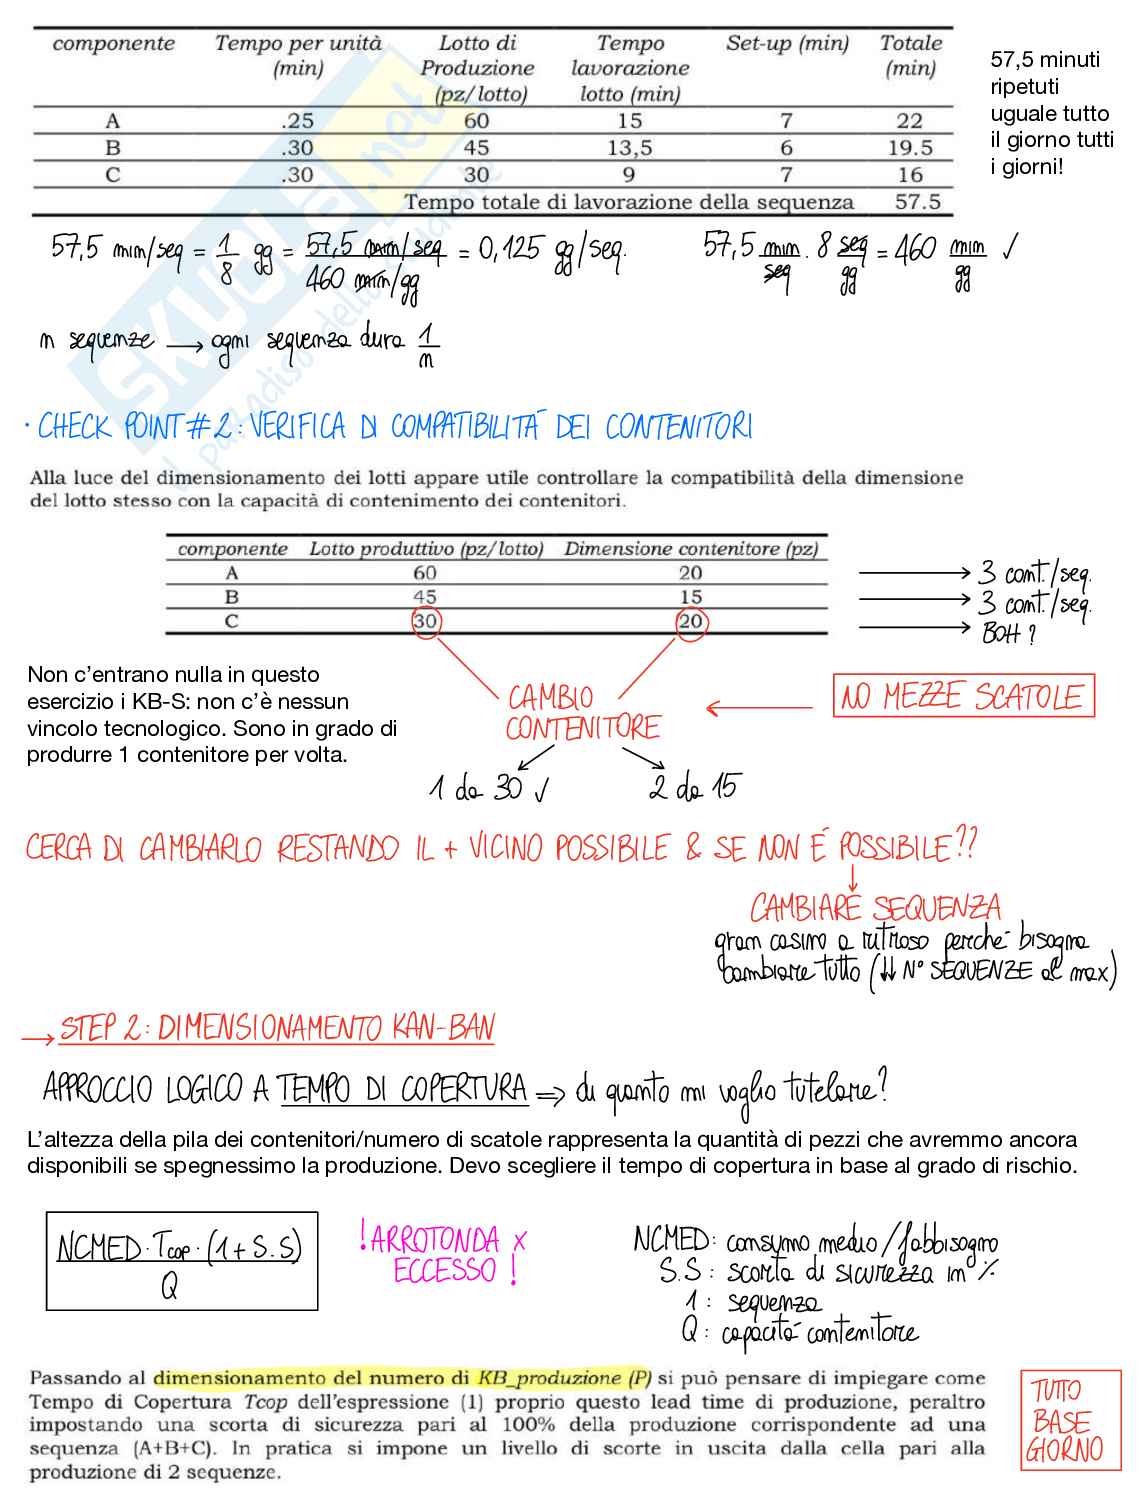 componente Tempo per unità Lotto di Tempo Set-up (min) Totale
(min) Produzione lavorazione (min)
(pz/lotto) lotto (min)
A .25 60 15 7 22
B .30 45 13,5 6 19.5
C .30 30 9 7 16
Tempo totale di lavorazione della sequenza 57.5
57,5 minuti
ripetuti
uguale tutto
il giorno tutti
i giorni!
57,5 min/seq = 1/8 gg = 57,5 min/seq / 460 min/gg = 0,125 gg/seq.
57,5 min/seq · 8 seq/gg = 460 min/gg ✓
n sequenze → ogni sequenza dura 1/n
SKUOLA.net
il paradiso dello studente
· CHECK POINT #2: VERIFICA DI COMPATIBILITÀ DEI CONTENITORI
Alla luce del dimensionamento dei lotti appare utile controllare la compatibilità della dimensione
del lotto stesso con la capacità di contenimento dei contenitori.
componente Lotto produttivo (pz/lotto) Dimensione contenitore (pz)
A 60 20 → 3 cont./seq.
B 45 15 → 3 cont./seq.
C 30 20 → BOH?
Non c'entrano nulla in questo
esercizio i KB-S: non c'è nessun
vincolo tecnologico. Sono in grado di
produrre 1 contenitore per volta.
CAMBIO
CONTENITORE
← NO MEZZE SCATOLE
1 da 30 ✓ 2 da 15
CERCA DI CAMBIARLO RESTANDO IL + VICINO POSSIBILE & SE NON È POSSIBILE??
↓
CAMBIARE SEQUENZA
gran casino a ritroso perché bisogna
cambiare tutto (↓↓ N° SEQUENZE al max)
→ STEP 2: DIMENSIONAMENTO KAN-BAN
APPROCCIO LOGICO A TEMPO DI COPERTURA ⇒ di quanto mi voglio tutelare?
L'altezza della pila dei contenitori/numero di scatole rappresenta la quantità di pezzi che avremmo ancora
disponibili se spegnessimo la produzione. Devo scegliere il tempo di copertura in base al grado di rischio.
NCMED · Tcop · (1 + S.S)
Q
! ARROTONDA x
ECCESSO !
NCMED: consumo medio/fabbisogno
S.S: scorta di sicurezza in %
1: sequenza
Q: capacità contenitore
Passando al dimensionamento del numero di KB_produzione (P) si può pensare di impiegare come
Tempo di Copertura Tcop dell'espressione (1) proprio questo lead time di produzione, peraltro
impostando una scorta di sicurezza pari al 100% della produzione corrispondente ad una
sequenza (A+B+C). In pratica si impone un livello di scorte in uscita dalla cella pari alla
produzione di 2 sequenze.
TUTTO
BASE
GIORNO